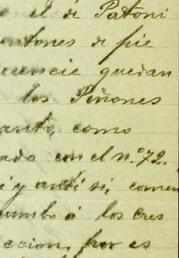 o el de Patoni
ntones de pie
cuencie quedan
los Piñones
anto, como
ado con el n.º 72.
y anti si, comen
umbo á los cres
ccion, por es